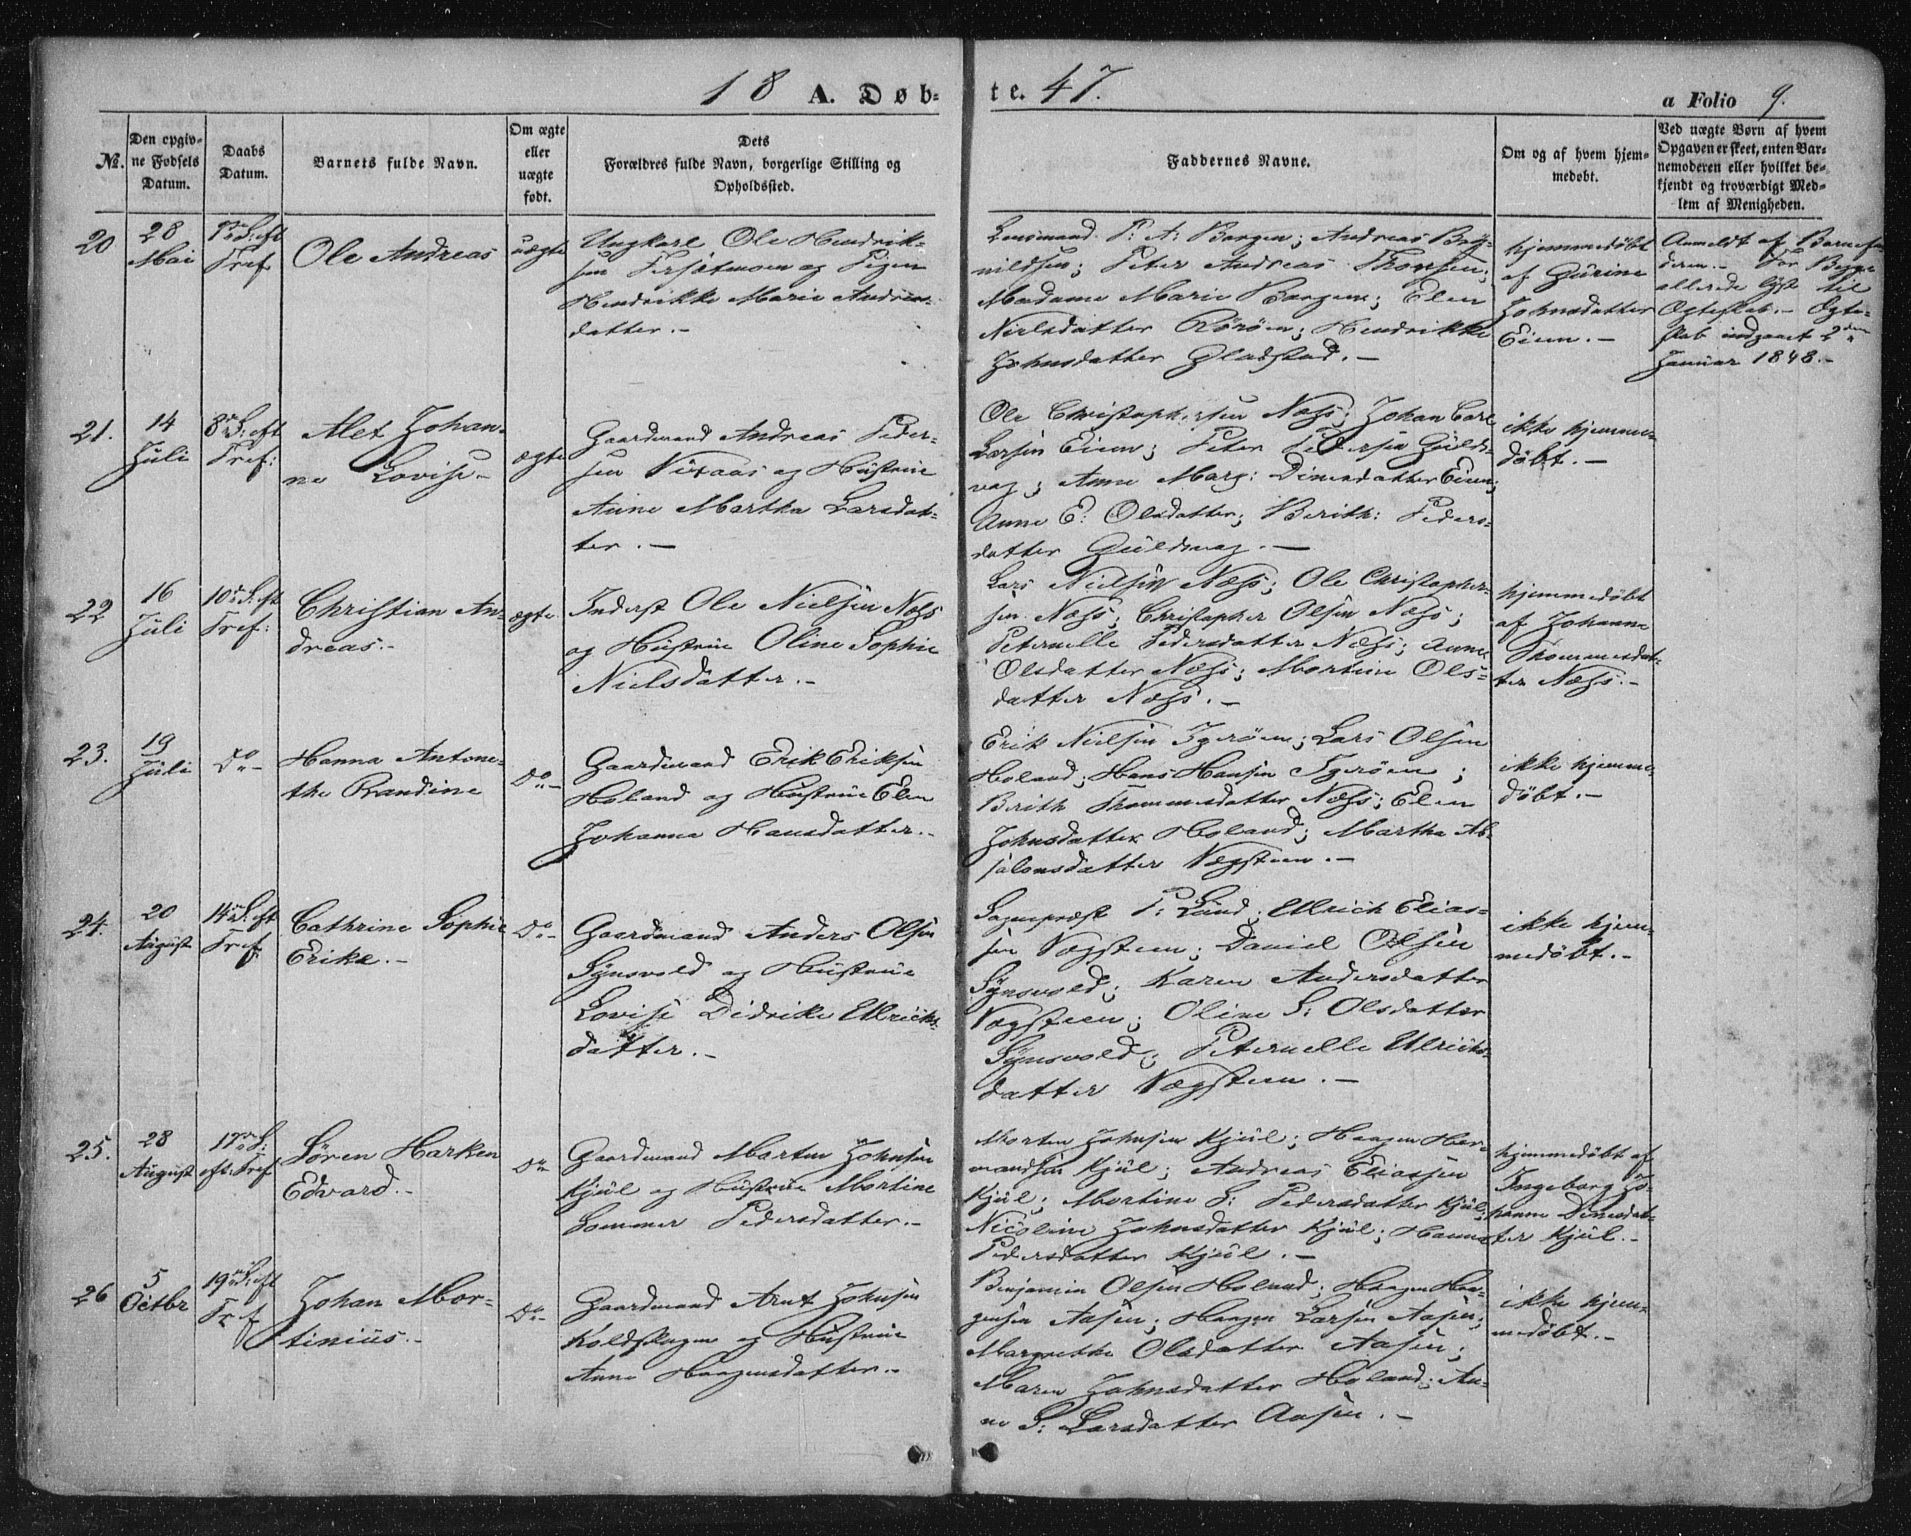 18 A. Døb-
te. 47.
a Folio 9.
No.
Den opgiv-
ne Fødsels
Datum.
Daabs
Datum.
Barnets fulde Navn.
Om ægte
eller
uægte
født.
Dets
Forældres fulde Navn, borgerlige Stilling og
Opholdssted.
Faddernes Navne.
Om og af hvem hjem-
medøbt.
Ved uægte Børn af hvem
Opgaven er skeet, enten Bar-
nemoderen eller hvilket be-
kjendt og troværdigt Med-
lem af Menigheden.
20
28
Mai
S: eft
Tref
Ole Andreas
uægte
Ungkarl Ole Hendrik-
sen og Pigen
Hendrikke Marie Andrea-
datter. -
Lensmand P: A: Borgen; Andreas Bry-
nildsen; Peter Andreas Thonsen;
Madame Marie Borgen; Elen
Nielsdatter Rörøen; Hendrikke
Johnsdatter Gladstad. -
hjemmedøbt
af Gurine
Johnsdatter
Eiem. -
Anmeldt af Barnefa-
deren. - For Begge
allerede lyst til
Ægteskab. - Ægte-
skab indgaaet 2den
Januar 1848. -
21.
14
Juli
8de S: eft
Tref:
Alet Johan-
ne Lovise -
ægte
Gaardmand Andreas Peder-
sen Vixaas og Hustrue
Anne Martha Larsdat-
ter. -
Ole Christophersen Næss; Johan Carl
Larsen Eiem; Peter Pedersen Gulds-
vag; Anne Marg: Dinesdatter Eiem;
Anne E: Olsdatter; Berith: Peders-
datter Guldsvag. -
ikke hjemme-
døbt. -
22
16
Juli
10de S: eft
Tref:
Christian An-
dreas. -
ægte
Inderst Ole Nielsen Næss
og Hustrue Oline Sophie
Nielsdatter. -
Lars Nielsen Næss; Ole Christopher-
sen Næss; Christopher Olsen Næss;
Peternelle Pedersdatter Næss; Anne
Olsdatter Næss; Mortine Ols-
datter Næss. -
hjemmedøbt
af Johanna
Thommesdat-
ter Næss. -
23.
19
Juli
Do -
Hanna Antone-
the Randine
Do -
Gaardmand Erik Eriksen
Holand og Hustrue Elen
Johanna Hansdatter. -
Erik Nielsen Igerøen; Lars Olsen
Holand; Hans Hansen Igerøen;
Berith Thommesdatter Næss; Elen
Johnsdatter Holand; Martha Ab-
salonsdatter Vægsteen. -
ikke hjemme-
døbt. -
24.
20
August
14de S: eft
Tref
Cathrine Sophie
Erika. -
Do -
Gaardmand Anders Olsen
Synsvold og Hustrue
Lovise Didrike Ulrichs-
datter. -
Sognepræst P: Lund; Ulrich Elias-
sen Vægsteen; Daniel Olsen
Synsvold; Karen Andersdatter
Vægsteen; Oline S: Olsdatter
Synsvold; Peternelle Ulrichs-
datter Vægsteen. -
ikke hjem-
medøbt. -
25.
28
August
17de S:
eft. Tref
Søren Harken
Edvard. -
Do
Gaardmand Morten Johnsen
Kjul og Hustrue Mortine
Sommer Pedersdatter. -
Morten Johnsen Kjul; Haagen Her-
mandsen Kjul; Andreas Eliassen
Kjul; Mortine S: Pedersdatter Kjul;
Nicoline Johnsdatter Kjul; Hanna
Pedersdatter Kjul. -
hjemmedøbt af
Ingeborg Jo-
hanne Dinesdat-
ter Kjul. -
26
5
Octbr
19de S: eft
Tref
Johan Mor-
tinius. -
Do -
Gaardmand Arnt Johnsen
Koldskogen og Hustrue
Anne Haagensdatter. -
Benjamin Olsen Holand; Haagen Haa-
gensen Aasen; Haagen Larsen Aasen;
Margrethe Olsdatter Aasen;
Maren Johnsdatter Holand; An-
ne S: Larsdatter Aasen. -
ikke hjem-
medøbt. -